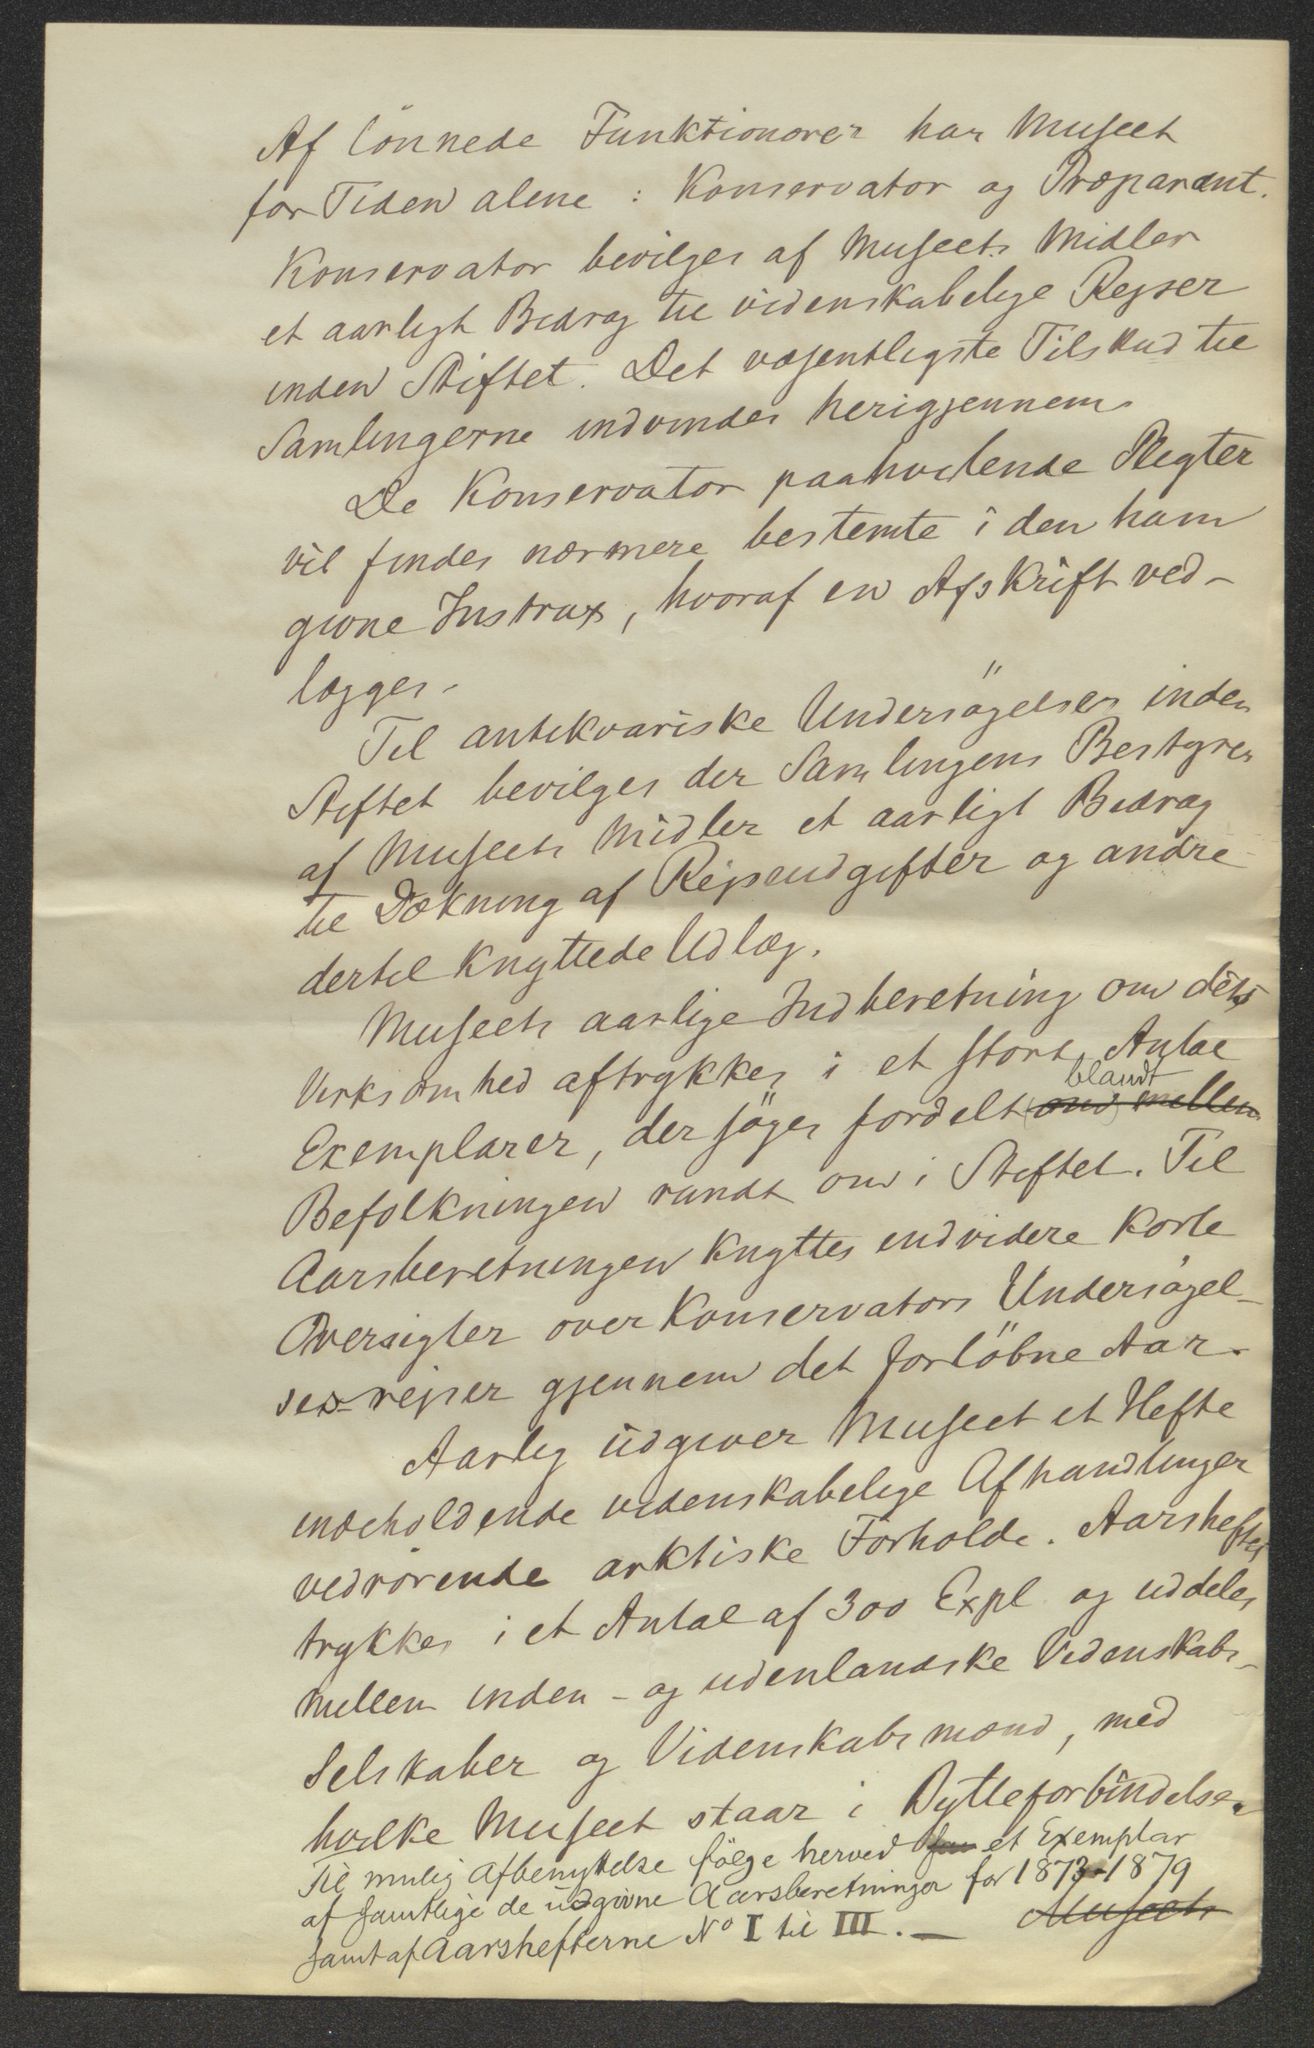 Af lönnede Funktionærer har Museet
for Tiden alene : Konservator og Præparant.
Konservator bevilges af Museets Midler
et aarligt Bidrag til videnskabelige Rejser
inden Stiftet. Det væsentligste Tilskud til
Samlingerne indvindes herigjennem.
De Konservator paahvilende Pligter
vil findes nærmere bestemte i den ham
givne Instrux, hvoraf en Afskrift ved-
lægges.
Til antikvariske Undersögelser inden
Stiftet bevilges der Samlingens Bestyrer
af Museets Midler et aarligt Bidrag
til Dækning af Rejseudgifter og andre
dertil knyttede Udlæg.
Museets aarlige Indberetning om dets
Virksomhed aftrykkes i et stort Antal
Exemplarer, der söges fordelt (om) mellem blandt
Befolkningen rundt om i Stiftet. Til
Aarsberetningen knyttes endvidere korte
Oversigter over Konservators Undersögel-
ses-rejser gjennem det forlöbne Aar.
Aarlig udgiver Museet et Hefte
indeholdende videnskabelige Afhandlinger
vedrörende arktiske Forholde. Aarsheftet
trykkes i et Antal af 300 Expl og uddeles
mellem inden- og udenlandske Videnskabs-
Selskaber og Videnskabsmænd, med
hvilke Museet staar i Bytteforbindelse.
Til mulig Afbenyttelse fölge herved et Exemplar
af samtlige de udgivne Aarsberetninger for 1873-1879
samt af Aarshefterne No I til III. —
Museets